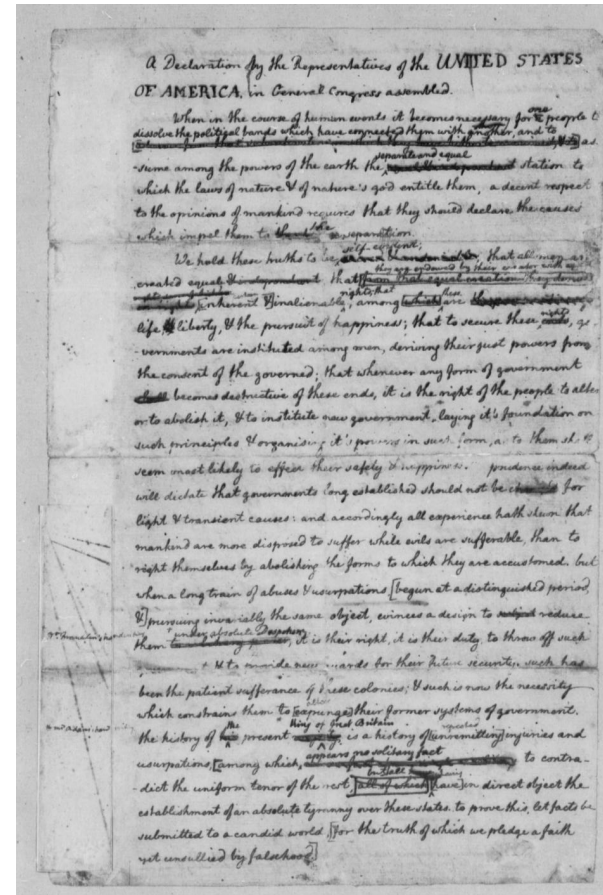 A Declaration by the Representatives of the UNITED STATES
OF AMERICA, in General Congress assembled.
When in the course of human events it becomes necessary for one people to
dissolve the political bands which have connected them with another, and to
as-
-sume among the powers of the earth the separate and equal station to
which the laws of nature & of nature's god entitle them, a decent respect
to the opinions of mankind requires that they should declare the causes
which impel them to the separation.
We hold these truths to be self-evident; that all men are
created equal; that they are endowed by their creator with
inherent & inalienable rights; that among these are
life, liberty, & the pursuit of happiness; that to secure these rights, go-
-vernments are instituted among men, deriving their just powers from
the consent of the governed; that whenever any form of government
becomes destructive of these ends, it is the right of the people to alter
or to abolish it, & to institute new government, laying it's foundation on
such principles & organising it's powers in such form, as to them shall
seem most likely to effect their safety & happiness. prudence indeed
will dictate that governments long established should not be changed for
light & transient causes: and accordingly all experience hath shewn that
mankind are more disposed to suffer while evils are sufferable, than to
right themselves by abolishing the forms to which they are accustomed. but
when a long train of abuses & usurpations, [begun at a distinguished period,
&] pursuing invariably the same object, evinces a design to reduce
them under absolute Despotism, it is their right, it is their duty, to throw off such
& to provide new guards for their future security. such has
been the patient sufferance of these colonies; & such is now the necessity
which constrains them to [expunge] their former systems of government.
the history of the present king of Great Britain is a history of [unremitting] injuries and
usurpations, [among which, appears no solitary fact to contra-
-dict the uniform tenor of the rest, all of which] [have] in direct object the
establishment of an absolute tyranny over these states. to prove this, let facts be
submitted to a candid world, [for the truth of which we pledge a faith
yet unsullied by falsehood]